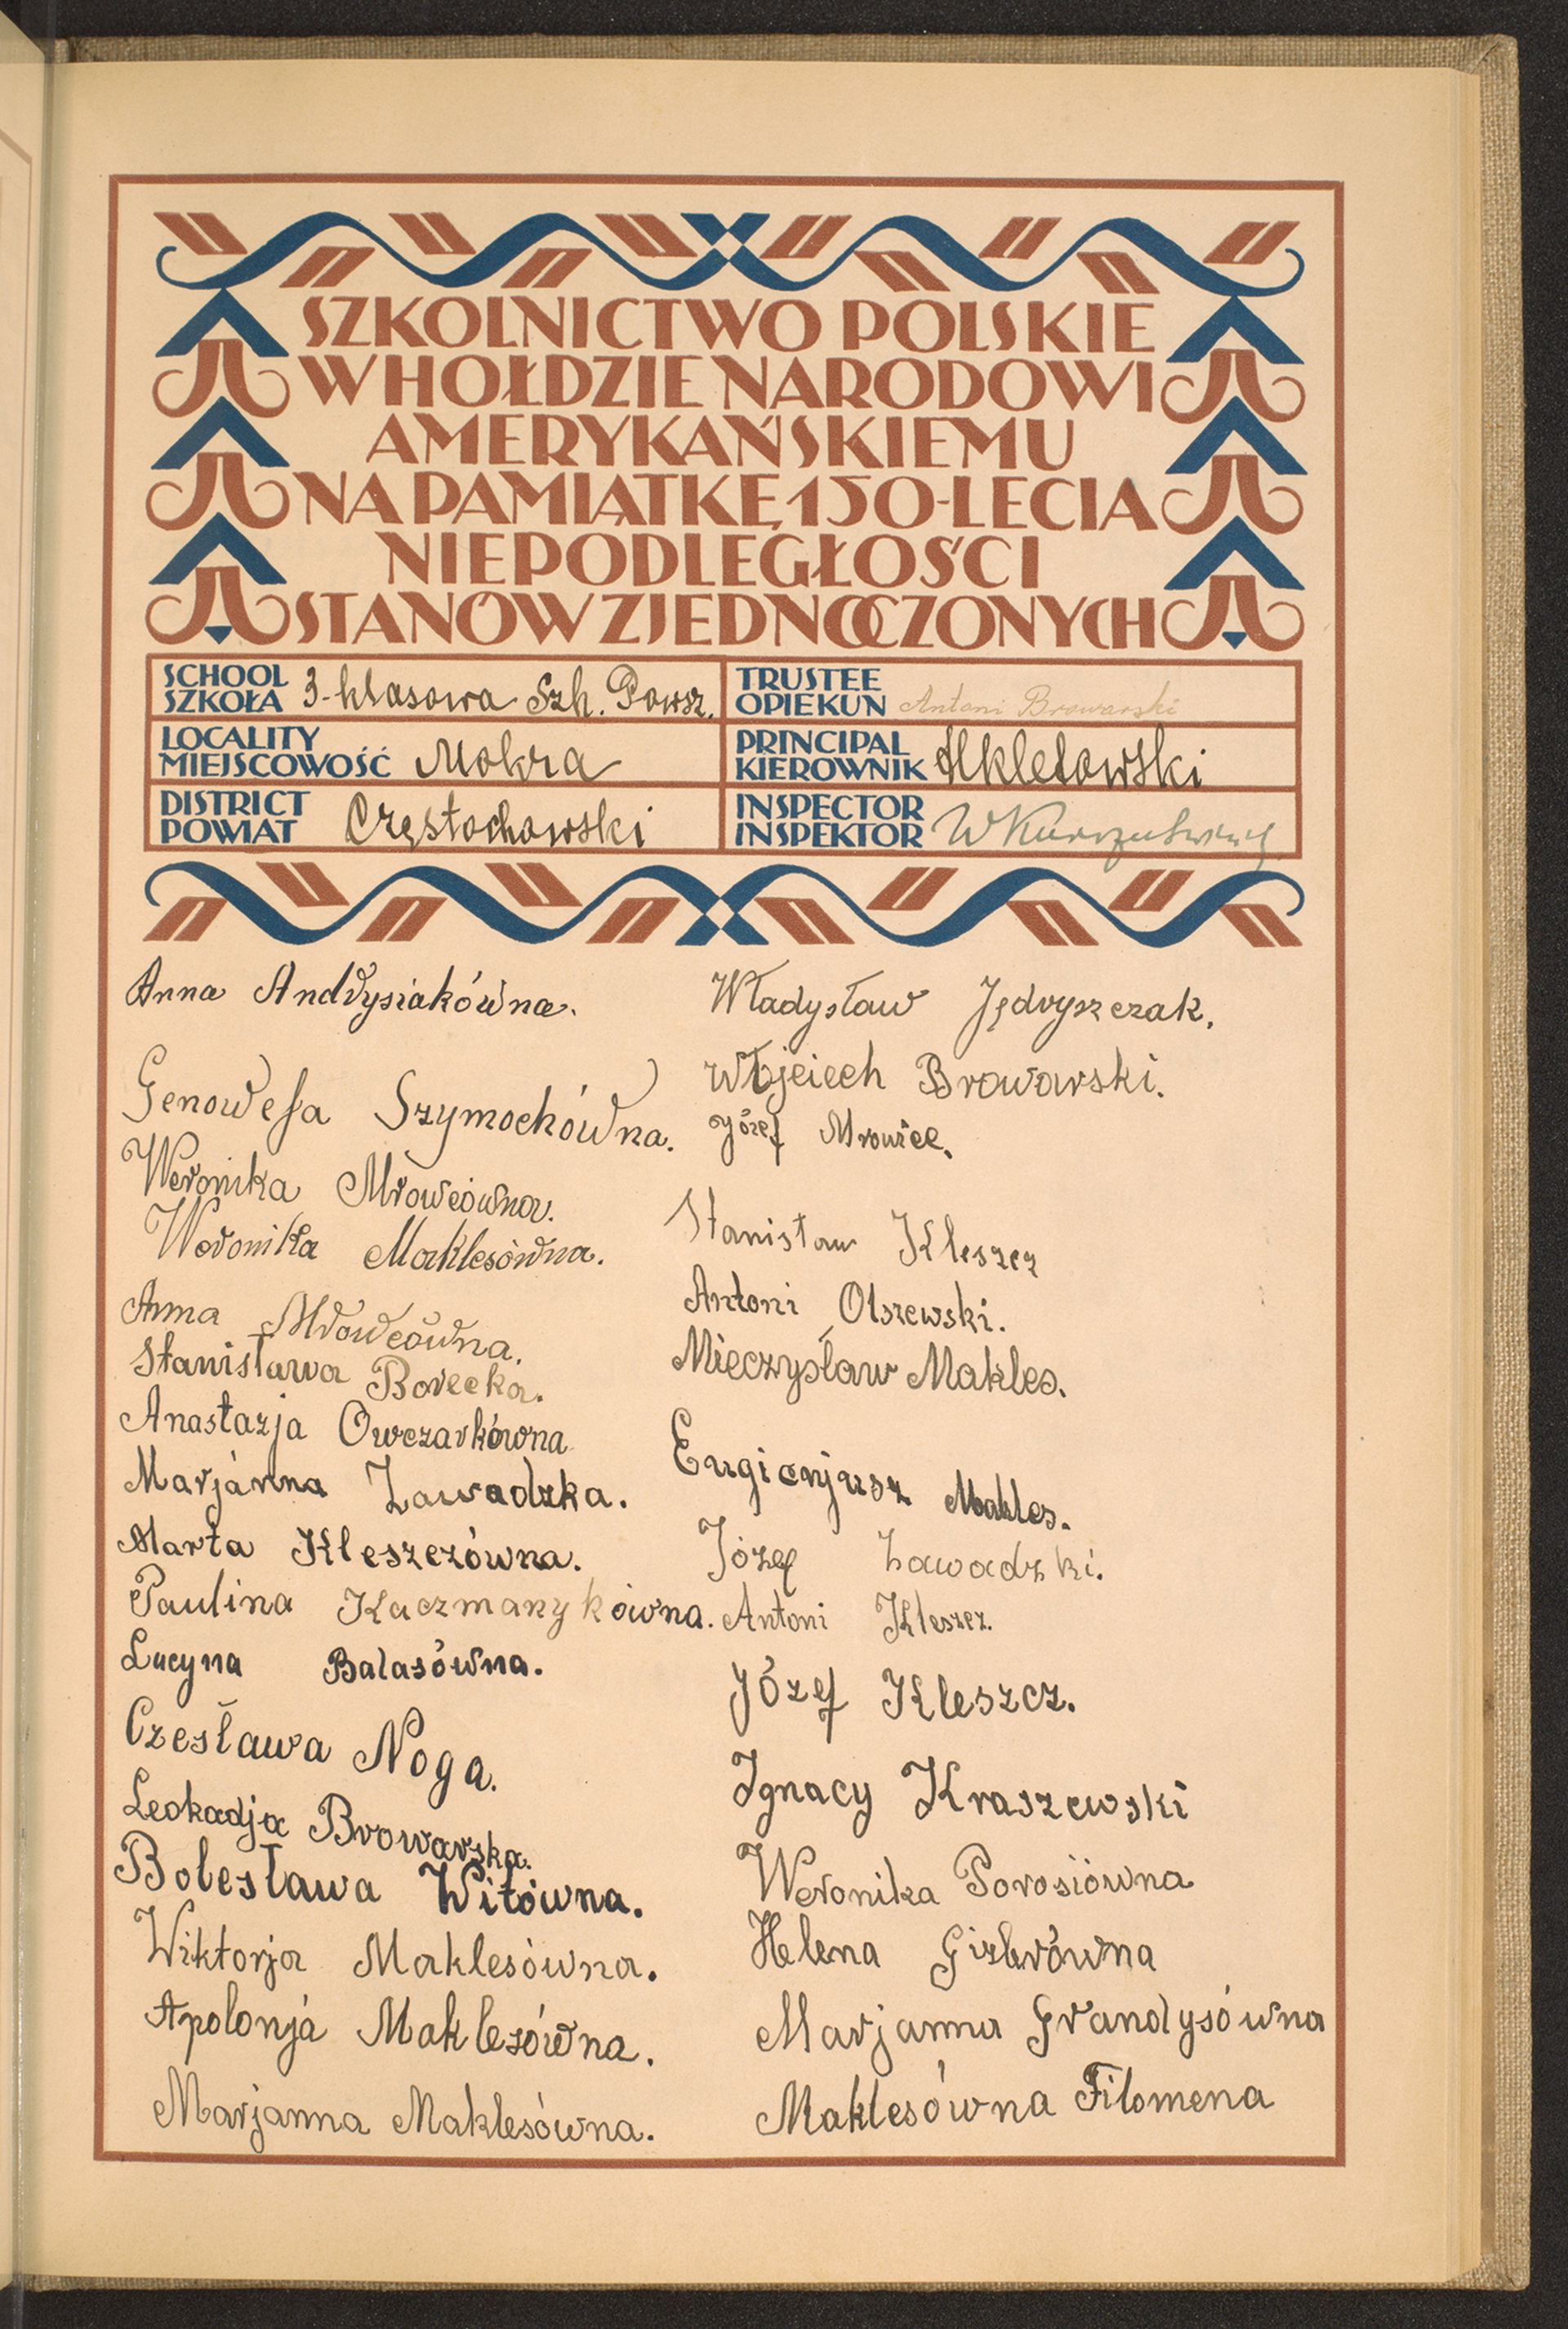 SZKOLNICTWO POLSKIE
W HOŁDZIE NARODOWI
AMERYKAŃSKIEMU
NA PAMIĄTKĘ 150-LECIA
NIEPODLEGŁOŚCI
STANÓW ZJEDNOCZONYCH
SCHOOL
SZKOŁA 3-klasowa Szk. Powsz.
LOCALITY
MIEJSCOWOŚĆ Mokra
DISTRICT
POWIAT Częstochowski
TRUSTEE
OPIEKUN Antoni Browarski
PRINCIPAL
KIEROWNIK
INSPECTOR
INSPEKTOR
Anna Andrysiakówna.
Genowefa Szymochówna.
Weronika Mrowcówna.
Weronika Maklesówna.
Anna Mrowcówna.
Stanisława Borecka.
Anastazja Owczarkówna
Marjanna Zawadzka.
Marta Kleszczówna.
Paulina Kaczmarzykówna.
Lucyna Balasówna.
Czesława Noga.
Leokadja Browarska.
Bolesława Witówna.
Wiktorja Maklesówna.
Apolonja Maklesówna.
Marjanna Maklesówna.
Władysław Jędryszczak.
Wojciech Browarski.
Józef Mrowiec.
Stanisław Kleszcz
Antoni Olszewski.
Mieczysław Makles.
Eugienjusz Makles.
Józef Zawadzki.
Antoni Kleszcz.
Józef Kleszcz.
Ignacy Kraszewski
Weronika Porosiówna
Helena Gizlerówna
Marjanna Grandysówna
Maklesówna Filomena